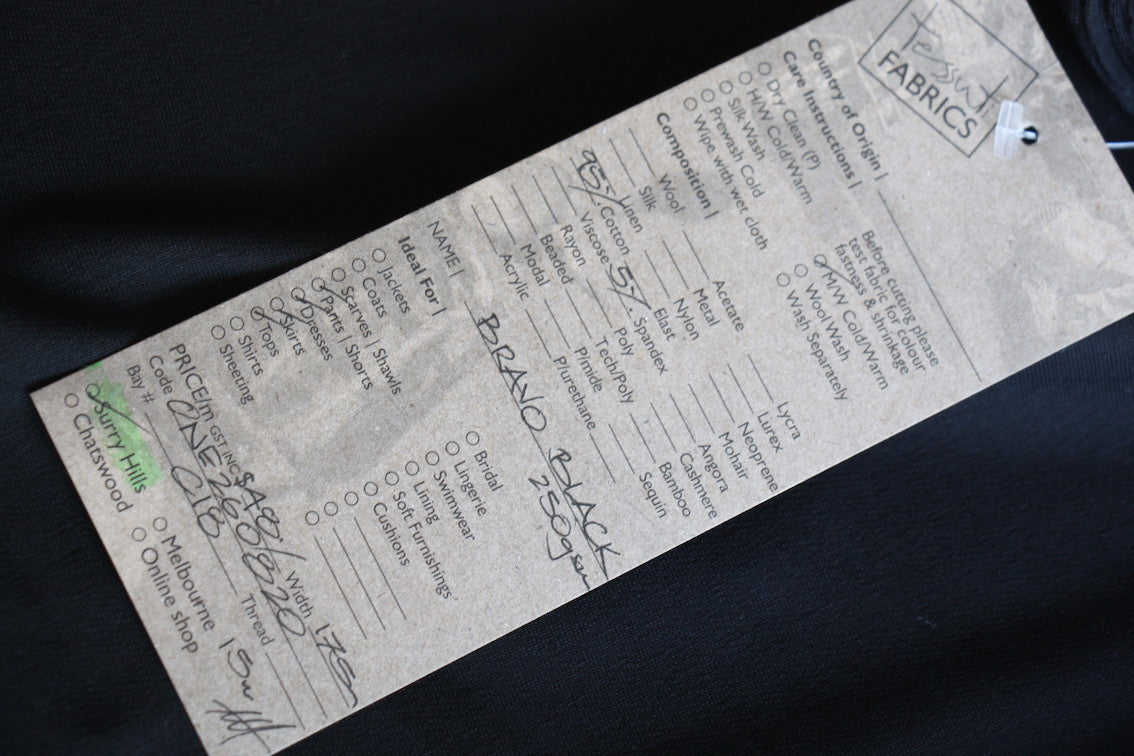 tessuti
FABRICS
Country of Origin |
Care Instructions |
Dry Clean (P)
H/W Cold/Warm
Silk Wash
Prewash Cold
Wipe with wet cloth
Before cutting please
test fabric for colour
fastness & shrinkage
M/W Cold/Warm
Wool Wash
Wash Separately
Composition |
Wool Acetate Lycra
Silk Metal Lurex
Linen Nylon Neoprene
95% Cotton Elast Mohair
Viscose 5% Spandex Angora
Rayon Poly Cashmere
Beaded Tech/Poly Bamboo
Modal P/mide Sequin
Acrylic P/urethane
NAME | BRAVO BLACK
250gsm
Ideal For |
Jackets
Coats
Scarves | Shawls
Pants | Shorts
Dresses
Skirts
Tops
Shirts
Sheeting
Bridal
Lingerie
Swimwear
Lining
Soft Furnishings
Cushions
PRICE/m GST INC $48/ Width 175
Code ONE268820
Bay # C18 Thread
Surry Hills
Chatswood
Melbourne
Online shop